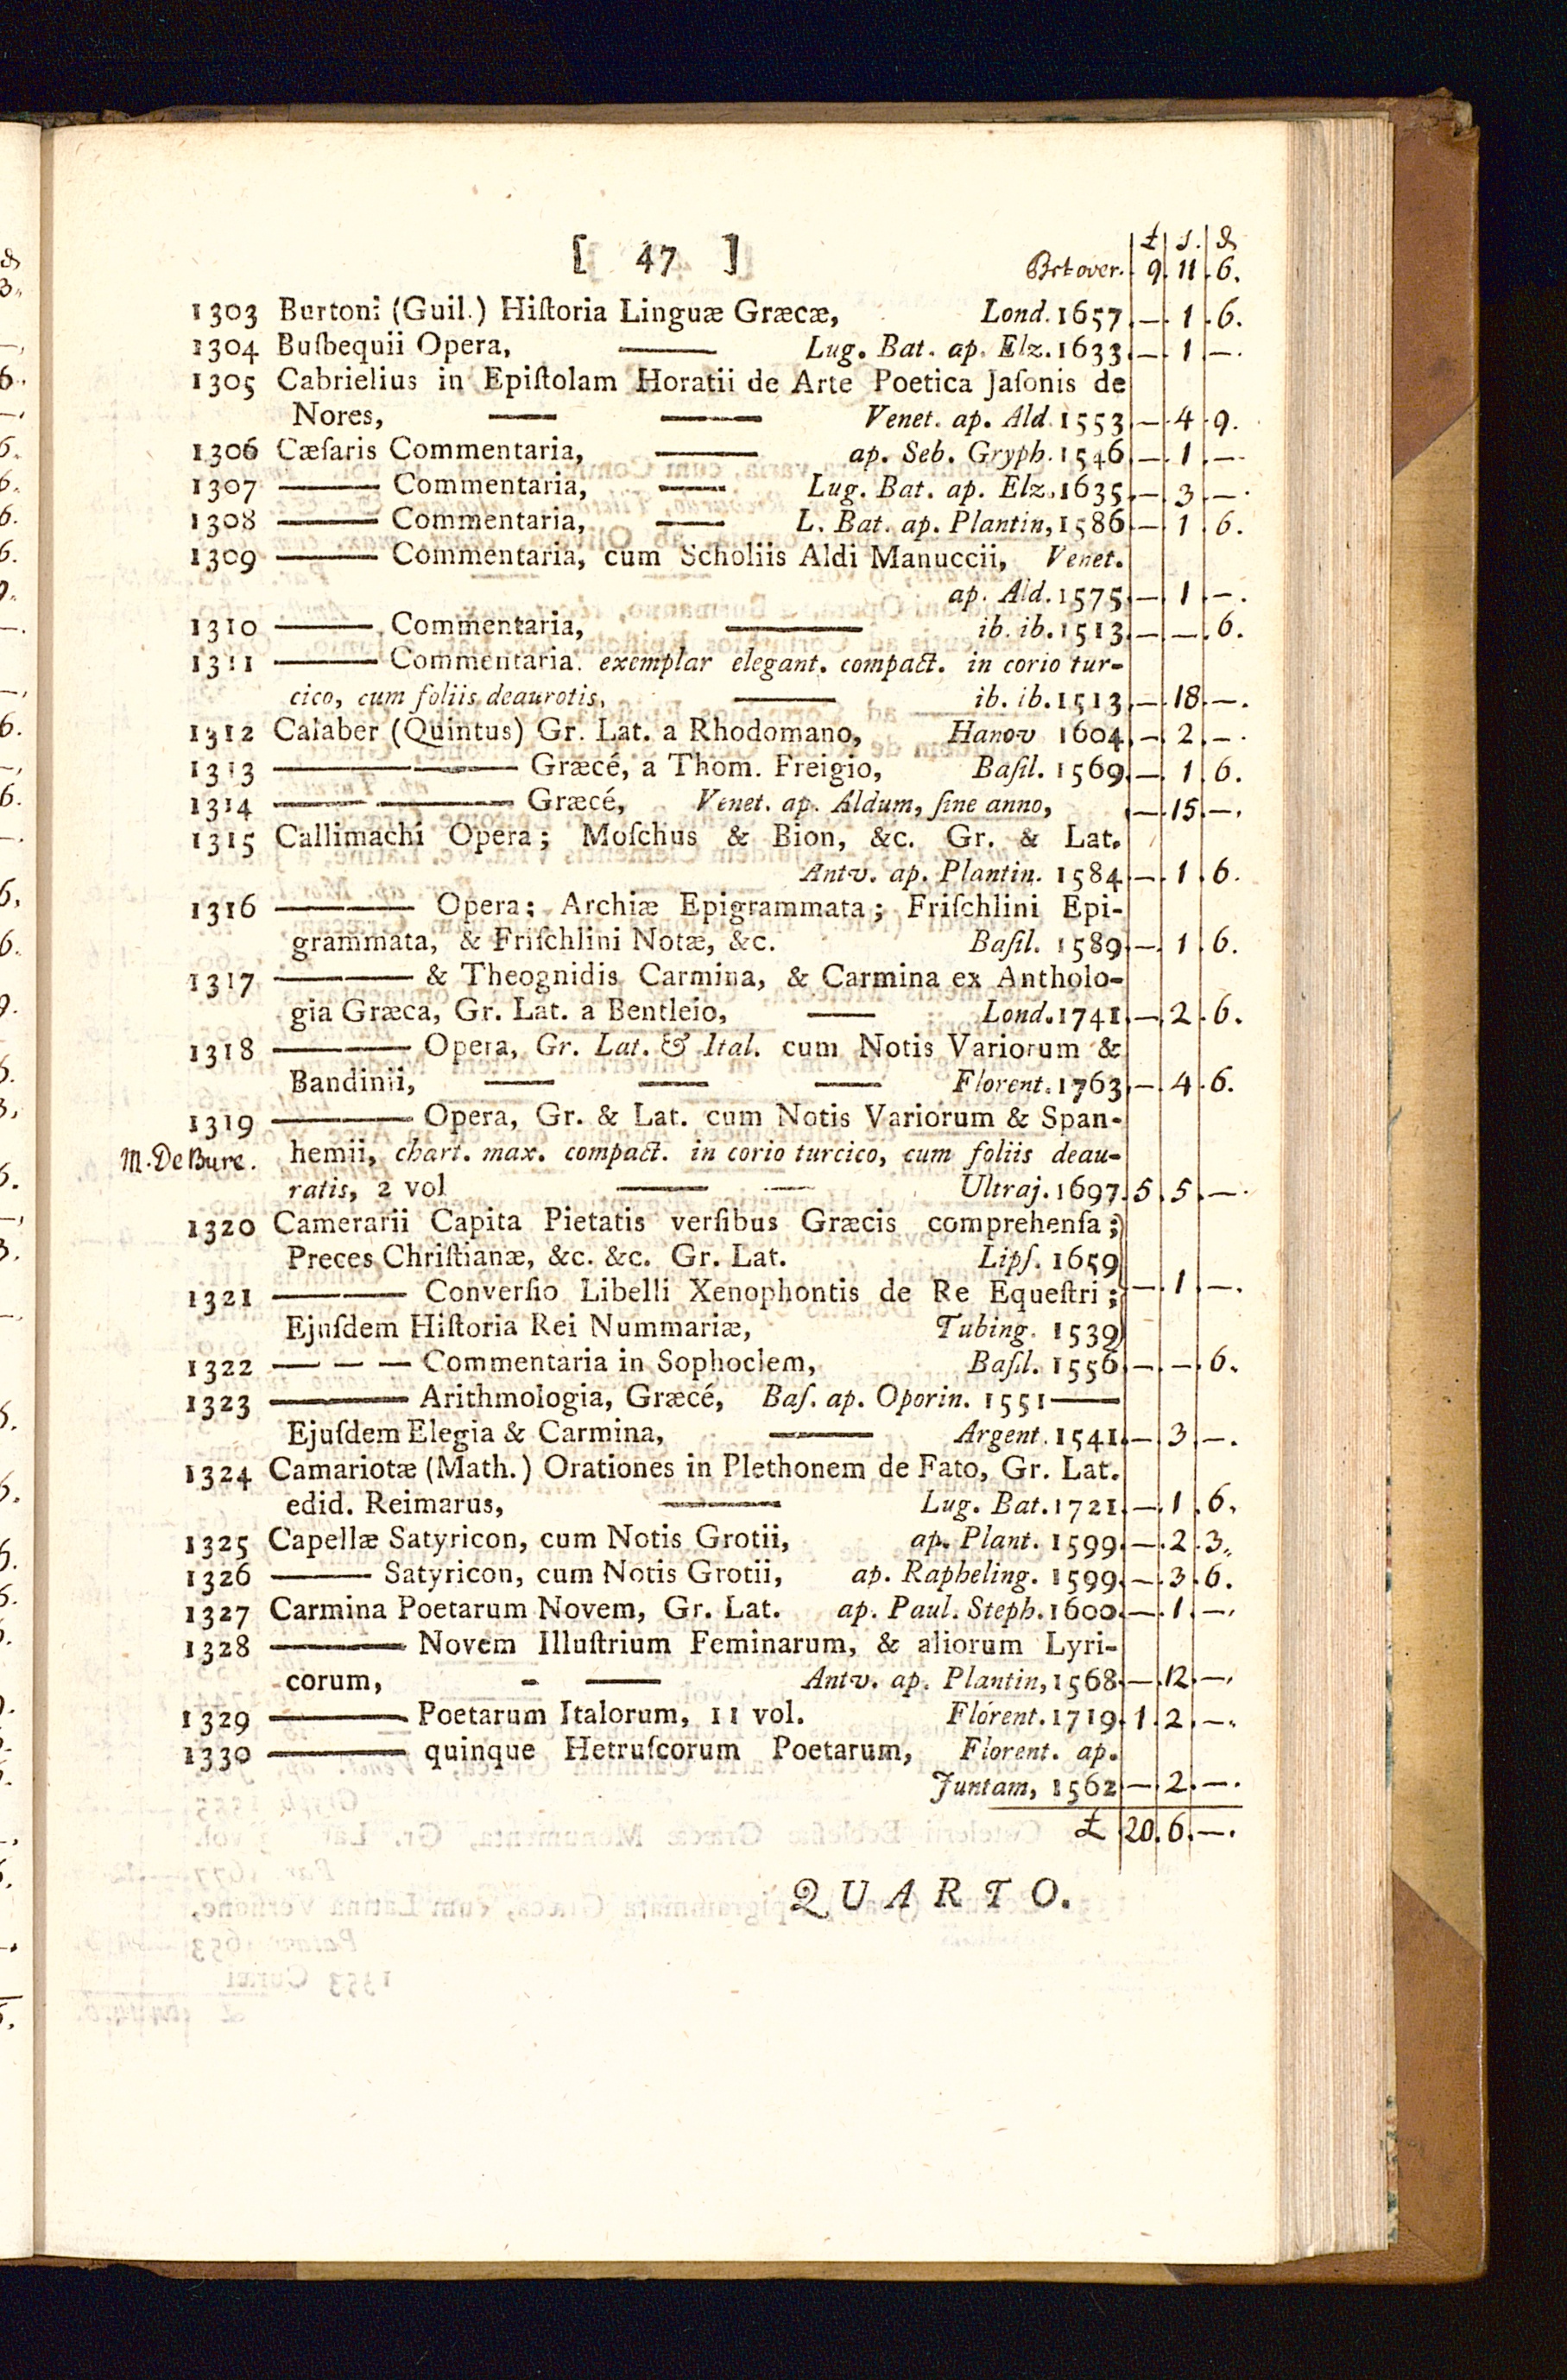 [ 47 ]
£ s. d
Brt over. 9. 11. 6.
1303 Burtoni (Guil.) Hiſtoria Linguæ Græcæ, Lond. 1657. —. 1. 6.
1304 Buſbequii Opera, —— Lug. Bat. ap. Elz. 1633. —. 1. —.
1305 Cabrielius in Epiſtolam Horatii de Arte Poetica Jaſonis de
Nores, —— —— Venet. ap. Ald. 1553. —. 4. 9.
1306 Cæſaris Commentaria, —— ap. Seb. Gryph. 1546. —. 1. —.
1307 —— Commentaria, —— Lug. Bat. ap. Elz. 1635. —. 3. —.
1308 —— Commentaria, —— L. Bat. ap. Plantin, 1586. —. 1. 6.
1309 —— Commentaria, cum Scholiis Aldi Manuccii, Venet.
ap. Ald. 1575. —. 1. —.
1310 —— Commentaria, —— ib. ib. 1513. —. —. 6.
1311 —— Commentaria. exemplar elegant. compact. in corio tur-
cico, cum foliis deaurotis, —— ib. ib. 1513. —. 18. —.
1312 Calaber (Quintus) Gr. Lat. a Rhodomano, Hanov 1604. —. 2. —.
1313 —— —— Græcé, a Thom. Freigio, Baſil. 1569. —. 1. 6.
1314 —— —— Græcé, Venet. ap. Aldum, ſine anno, —. 15. —.
1315 Callimachi Opera; Moſchus & Bion, &c. Gr. & Lat.
Antv. ap. Plantin. 1584. —. 1. 6.
1316 —— —— Opera; Archiæ Epigrammata; Friſchlini Epi-
grammata, & Friſchlini Notæ, &c. Baſil. 1589. —. 1. 6.
1317 —— —— & Theognidis Carmina, & Carmina ex Antholo-
gia Græca, Gr. Lat. a Bentleio, —— Lond. 1741. —. 2. 6.
1318 —— —— Opera, Gr. Lat. & Ital. cum Notis Variorum &
Bandinii, —— —— —— Florent. 1763. —. 4. 6.
1319 —— —— Opera, Gr. & Lat. cum Notis Variorum & Span-
M. De Bure. hemii, chart. max. compact. in corio turcico, cum foliis deau-
ratis, 2 vol —— — Ultraj. 1697. 5. 5. —.
1320 Camerarii Capita Pietatis verſibus Græcis comprehenſa;
Preces Chriſtianæ, &c. &c. Gr. Lat. Lipſ. 1659
1321 —— —— Converſio Libelli Xenophontis de Re Equeſtri; —. 1. —.
Ejuſdem Hiſtoria Rei Nummariæ, Tubing. 1539
1322 — — — Commentaria in Sophoclem, Baſil. 1556. —. —. 6.
1323 —— —— Arithmologia, Græcé, Baſ. ap. Oporin. 1551 ——
Ejuſdem Elegia & Carmina, —— Argent. 1541. —. 3. —.
1324 Camariotæ (Math.) Orationes in Plethonem de Fato, Gr. Lat.
edid. Reimarus, —— Lug. Bat. 1721. —. 1. 6.
1325 Capellæ Satyricon, cum Notis Grotii, ap. Plant. 1599. —. 2. 3.
1326 —— Satyricon, cum Notis Grotii, ap. Rapheling. 1599. —. 3. 6.
1327 Carmina Poetarum Novem, Gr. Lat. ap. Paul. Steph. 1600. —. 1. —.
1328 —— —— Novem Illuſtrium Feminarum, & aliorum Lyri-
corum, - —— Antv. ap. Plantin, 1568. —. 12. —.
1329 —— —— Poetarum Italorum, 11 vol. Florent. 1719. 1. 2. —.
1330 —— —— quinque Hetruſcorum Poetarum, Florent. ap.
Juntam, 1562. —. 2. —.
£ 20. 6. —.
QUARTO.